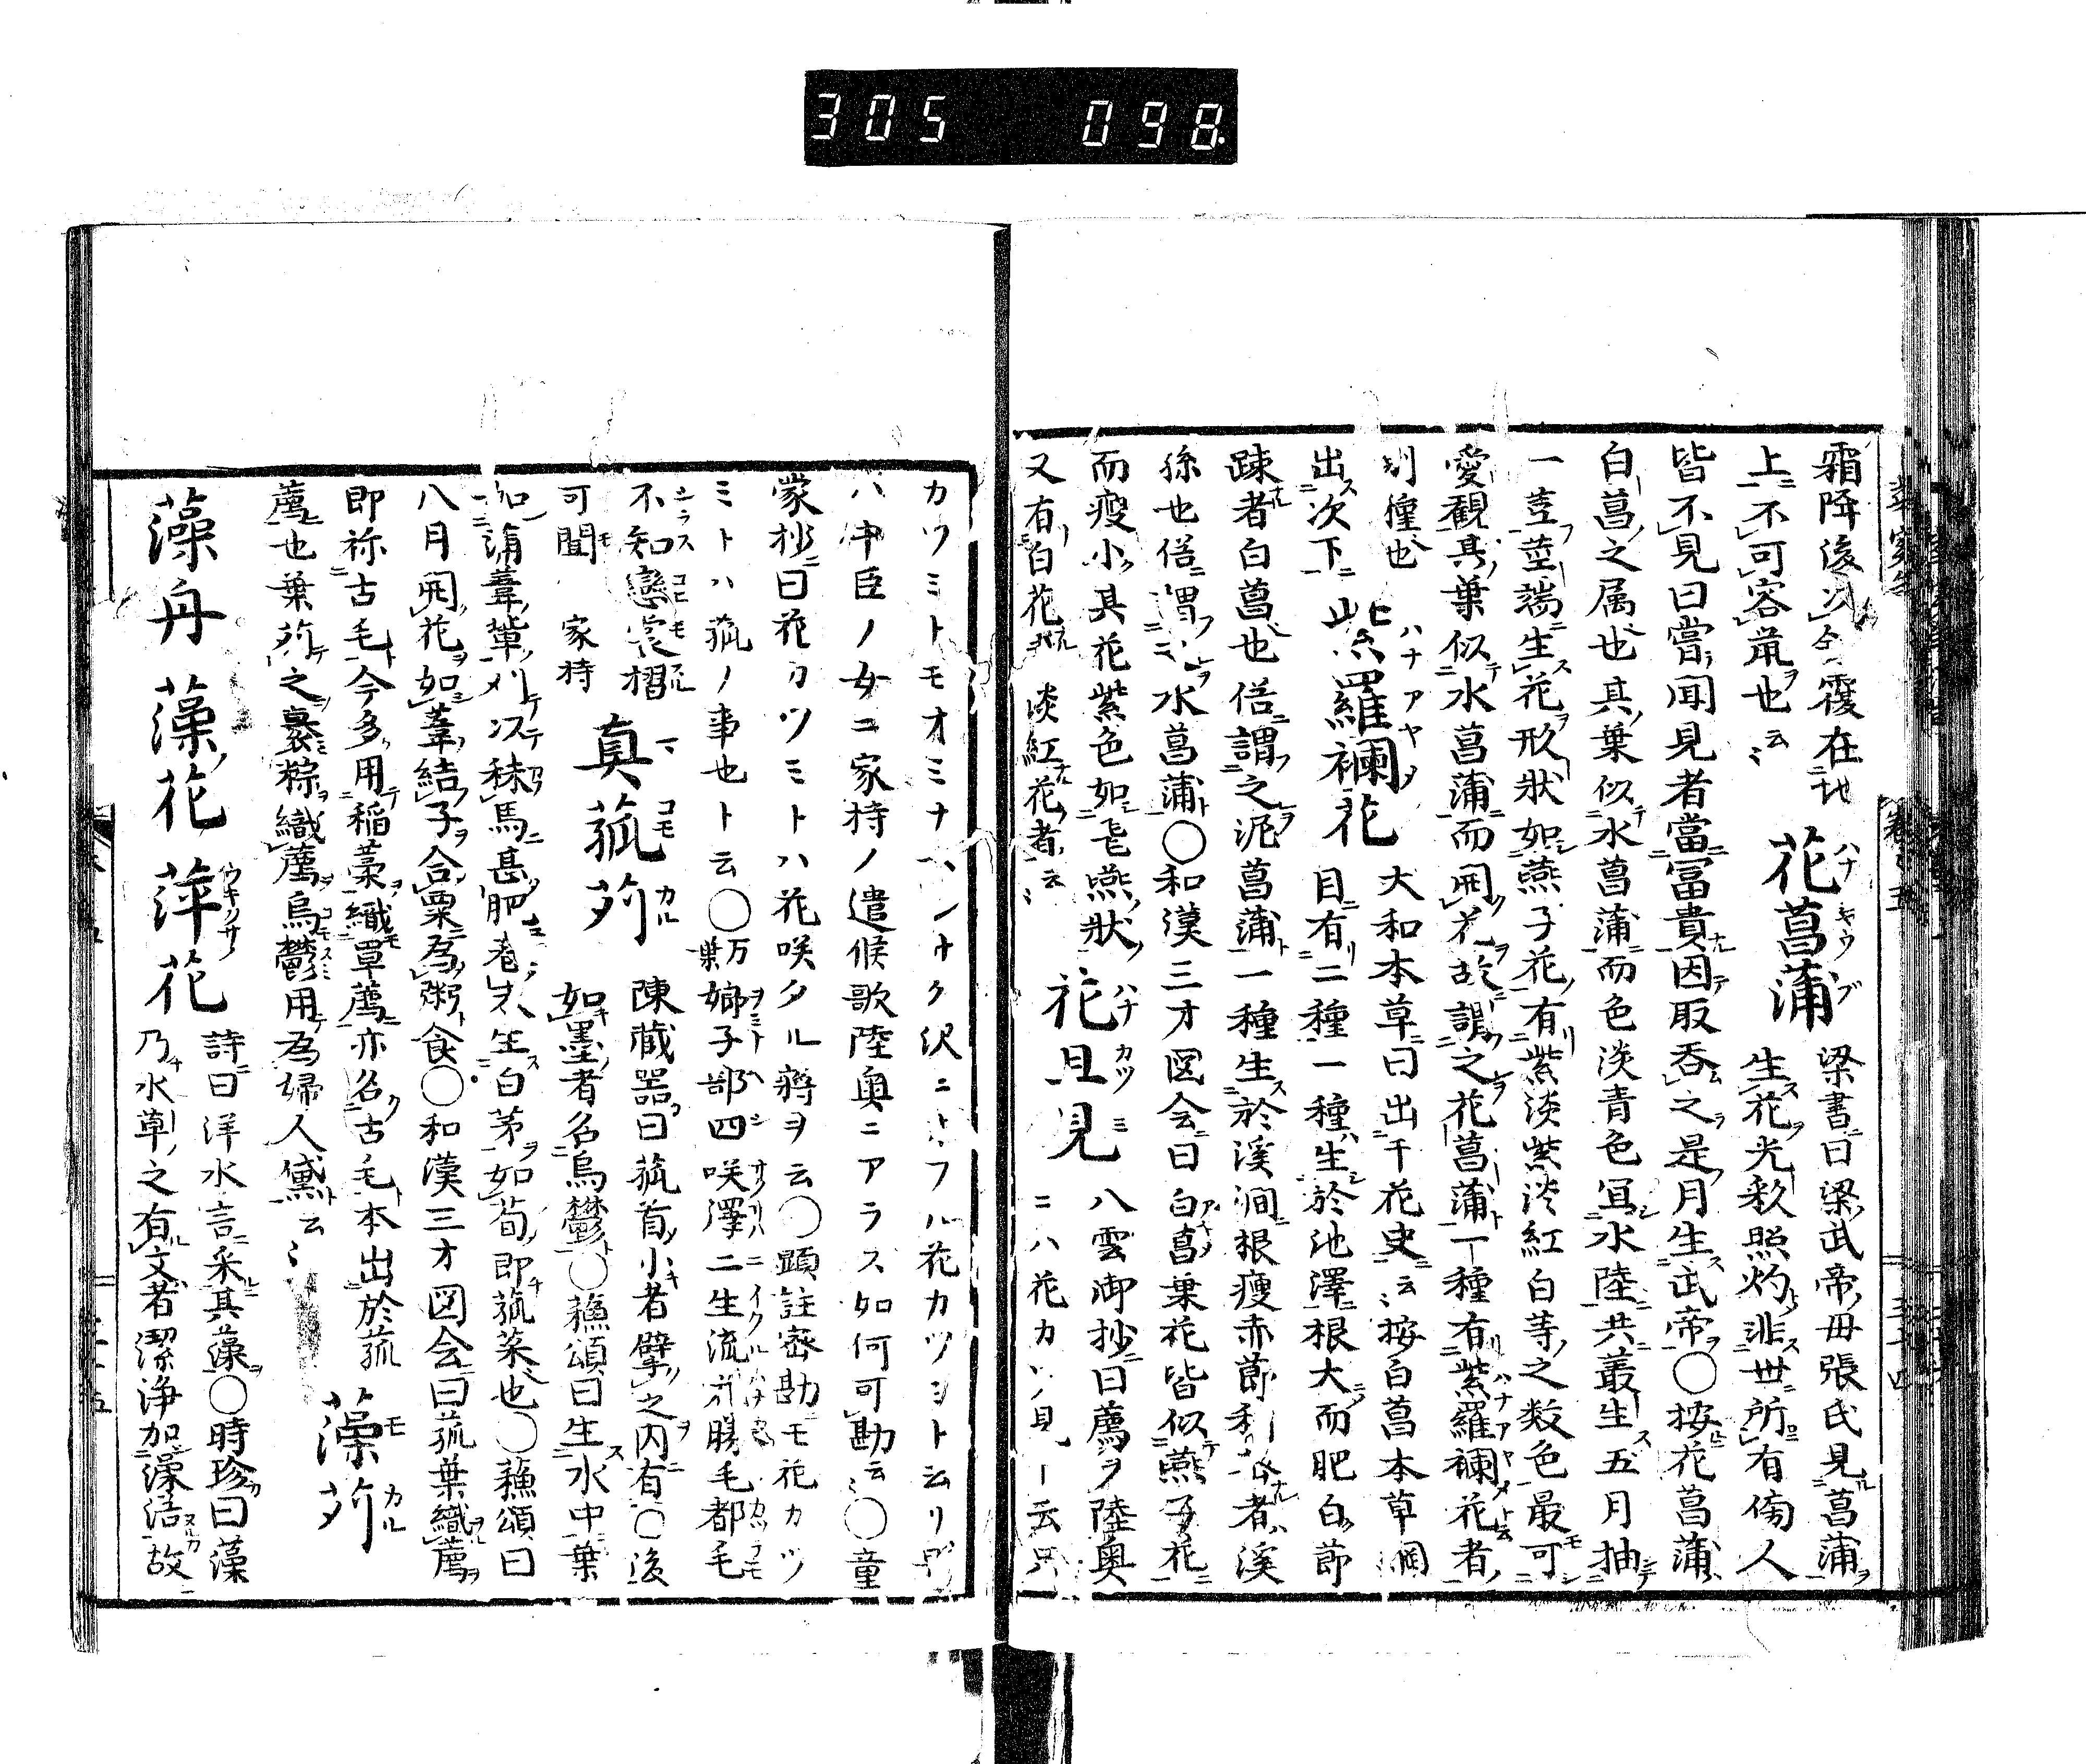 305 098
霜降後以今覆在地
上不可容鼠也云〻 花菖蒲 梁書曰梁武帝毋張氏見菖蒲
生花光彩照灼非世所有傍人
皆不見曰嘗聞見者當冨貴因取呑之是月生武帝〇按花菖蒲
白菖之属也其葉似水菖蒲而色淡青色冝水陸共叢生五月抽
一莖莖端生花形状如燕子花有紫淡紫淡紅白等之数色最可
愛観其葉似水菖蒲而開花故謂之花菖蒲一種有紫羅襴花者
別種也 紫羅襴花 大和本草曰出千花史云〻按白菖本草綱
出次下 目有二種一種生於池澤根大而肥白節
踈者白菖也俗謂之泥菖蒲一種生於溪澗根瘦赤節稍密者溪
孫也俗謂之水菖蒲〇和漢三才図会曰白菖葉花皆似燕子花
而瘦小其花紫色如飛燕状 花且見 八雲御抄曰薦ヲ陸奥
又有白花或淡紅花者云〻 ニハ花カツ見ト云只
カツミトモオミナヘシサク沢ニオフル花カツミト云リ
ハ中臣ノ女ニ家持ノ遣候歌陸奥ニアラス如何可勘云〻〇童
蒙抄曰花カツミトハ花咲タル蒋ヲ云〇顕註密勘モ花カツ
ミトハ菰ノ事也ト云〇万葉 娜子部四咲澤二生流花勝毛都毛
不知戀裳摺
可聞 家持 真菰苅 陳蔵器曰菰首小者擘之内有〇後
如墨者名烏鬱〇蘓頌曰生水中葉
如蒲葦軰刈以秣馬甚肥春末生白茅如荀即菰菜也〇蘓頌曰
八月開花如葦結子合粟為粥食〇和漢三才図会曰菰葉織薦
即祢古毛今多用稲藁織覃薦亦名古毛本出於菰
薦也葉苅之裹粽織薦烏鬱用為婦人黛云〻 藻苅
藻舟 藻花 萍花 詩曰泮水言采其藻〇時珍曰藻
乃水草之有文者潔浄如澡浴故